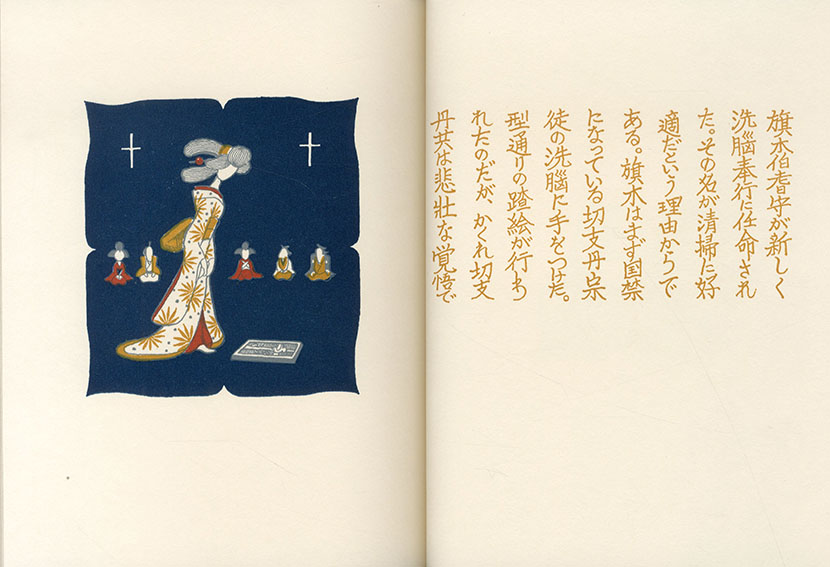 旗本伯耆守が新しく
洗腦奉行に任命され
た。その名が清掃に好
適だという理由からで
ある。旗本はまず国禁
になっている切支丹宗
徒の洗腦に手をつけた。
型通りの踏絵が行わ
れたのだが、かくれ切支
丹共は悲壯な覚悟で